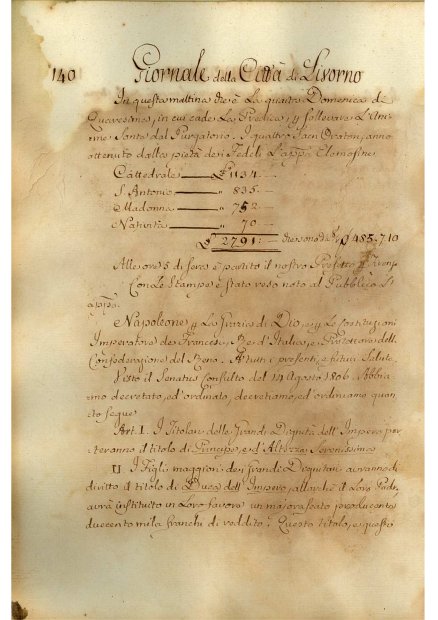 140 Giornale della Città di Livorno
In questa mattina, che è La quarta Domenica di
Quaresima, in cui cade La Predica, p sollevare L'Ani-
me Sante del Purgatorio. I quattro Sacri Oratori anno
ottenuto dalla pietà dei Fedeli L'app.a Elemosine
Cattedrale — £ 1134 —
S. Antonio — „ 835 —
Madonna — „ 752 —
Natività — „ 70 —
£ 2791: — che sono di 485.7.10
Alle ore 5 di sera è partito il nostro Prefetto p
Con Le Stampe è stato reso noto al Pubblico L'
app.a
Napoleone p La Grazia di Dio, e p Le Costituzioni
Imperatore dei Francesi, Re d'Italia, e Protettore dell.
Confederazione del Reno. A tutti i presenti, e futuri Salute.
Visto il Senatus Consulto del 14 Agosto 1806. Abbia-
mo decretato, ed ordinato, decretiamo, ed ordiniamo quan-
to segue
Art. I. I Titolari delle Grandi Dignità dell'Impero por-
teranno il titolo di Principe, e d'Altezza Serenissima
II I Figli maggiori dei Grandi Dignitari avranno di
diritto il titolo di Duca dell'Impero, allorchè il Loro Padre
avrà instituito in Loro favore un majorasato producente
duecento mila franchi di reddito. Questo titolo, e questo